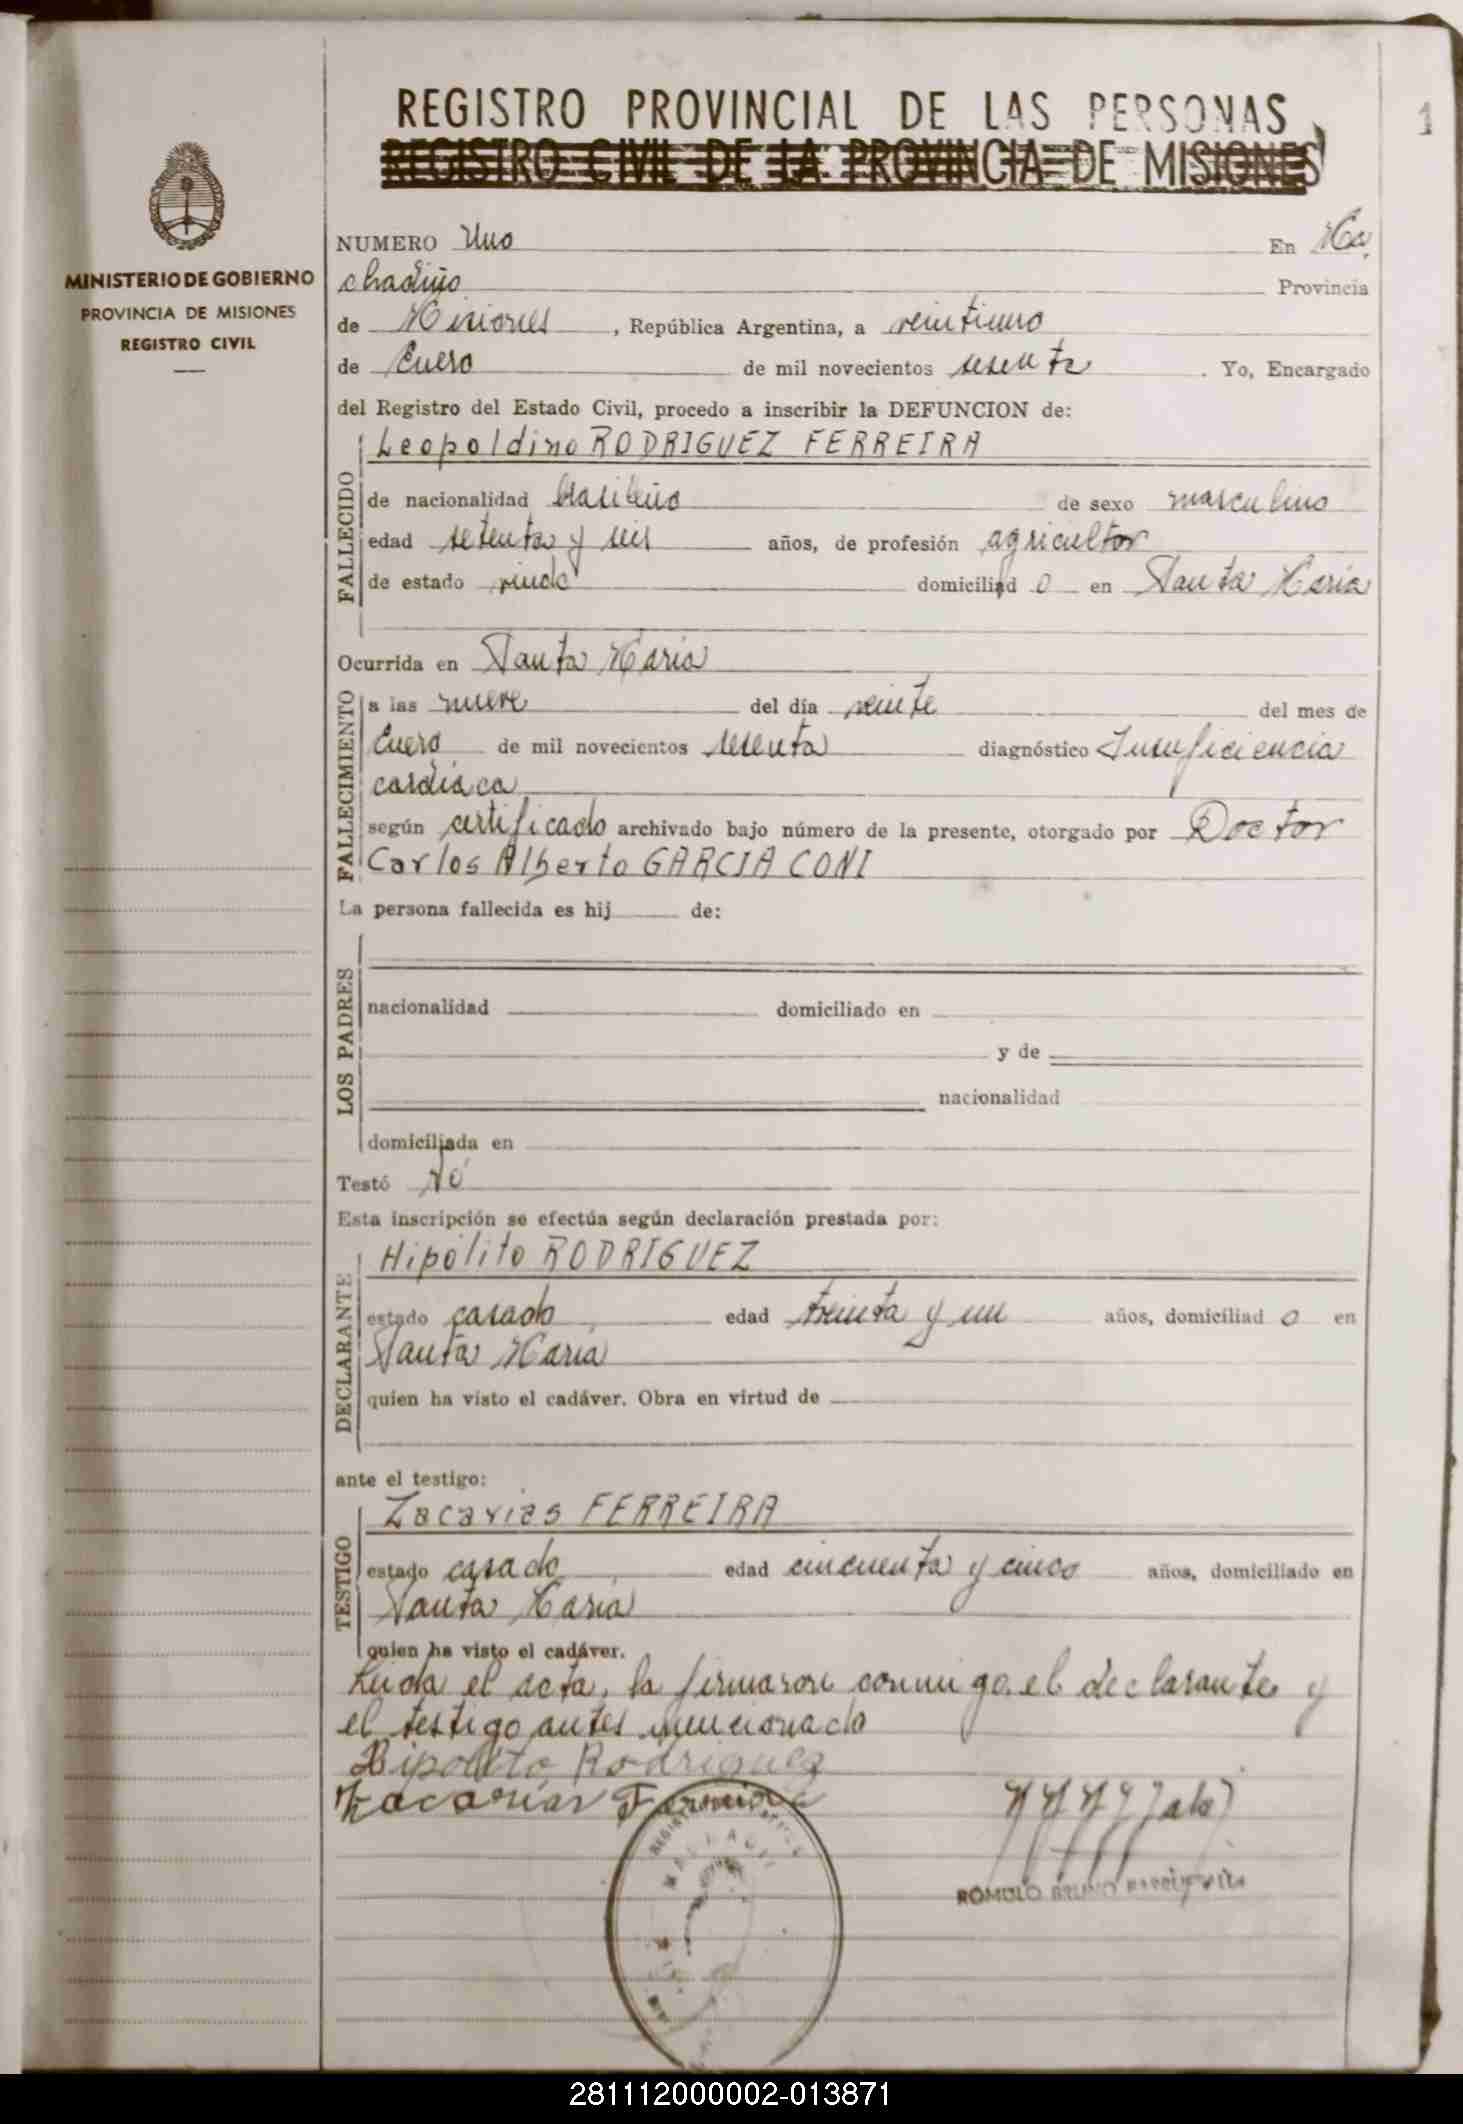 REGISTRO PROVINCIAL DE LAS PERSONAS
REGISTRO CIVIL DE LA PROVINCIA DE MISIONES
1
MINISTERIO DE GOBIERNO
PROVINCIA DE MISIONES
REGISTRO CIVIL
NUMERO Uno En Ma
chadiño Provincia
de Misiones, República Argentina, a veintiuno
de Enero de mil novecientos sesenta. Yo, Encargado
del Registro del Estado Civil, procedo a inscribir la DEFUNCION de:
Leopoldino RODRIGUEZ FERREIRA
FALLECIDO
de nacionalidad brasileño de sexo masculino
edad setenta y seis años, de profesión agricultor
de estado viudo domiciliad o en Santa María
Ocurrida en Santa María
FALLECIMIENTO
a las nueve del día veinte del mes de
Enero de mil novecientos sesenta diagnóstico Insuficiencia
cardíaca
según certificado archivado bajo número de la presente, otorgado por Doctor
Carlos Alberto GARCIA CONI
La persona fallecida es hij de:
LOS PADRES
nacionalidad domiciliado en
y de
nacionalidad
domiciliada en
Testó Nó
Esta inscripción se efectúa según declaración prestada por:
Hipólito RODRIGUEZ
DECLARANTE
estado casado edad treinta y un años, domiciliad o en
Santa María
quien ha visto el cadáver. Obra en virtud de
ante el testigo:
Zacarias FERREIRA
TESTIGO
estado casado edad cincuenta y cinco años, domiciliado en
Santa María
quien ha visto el cadáver.
Leída el acta, la firmaron conmigo el declarante y
el testigo antes mencionado
Hipolito Rodriguez
Zacarias Ferreira
ROMULO BRUNO
281112000002-013871